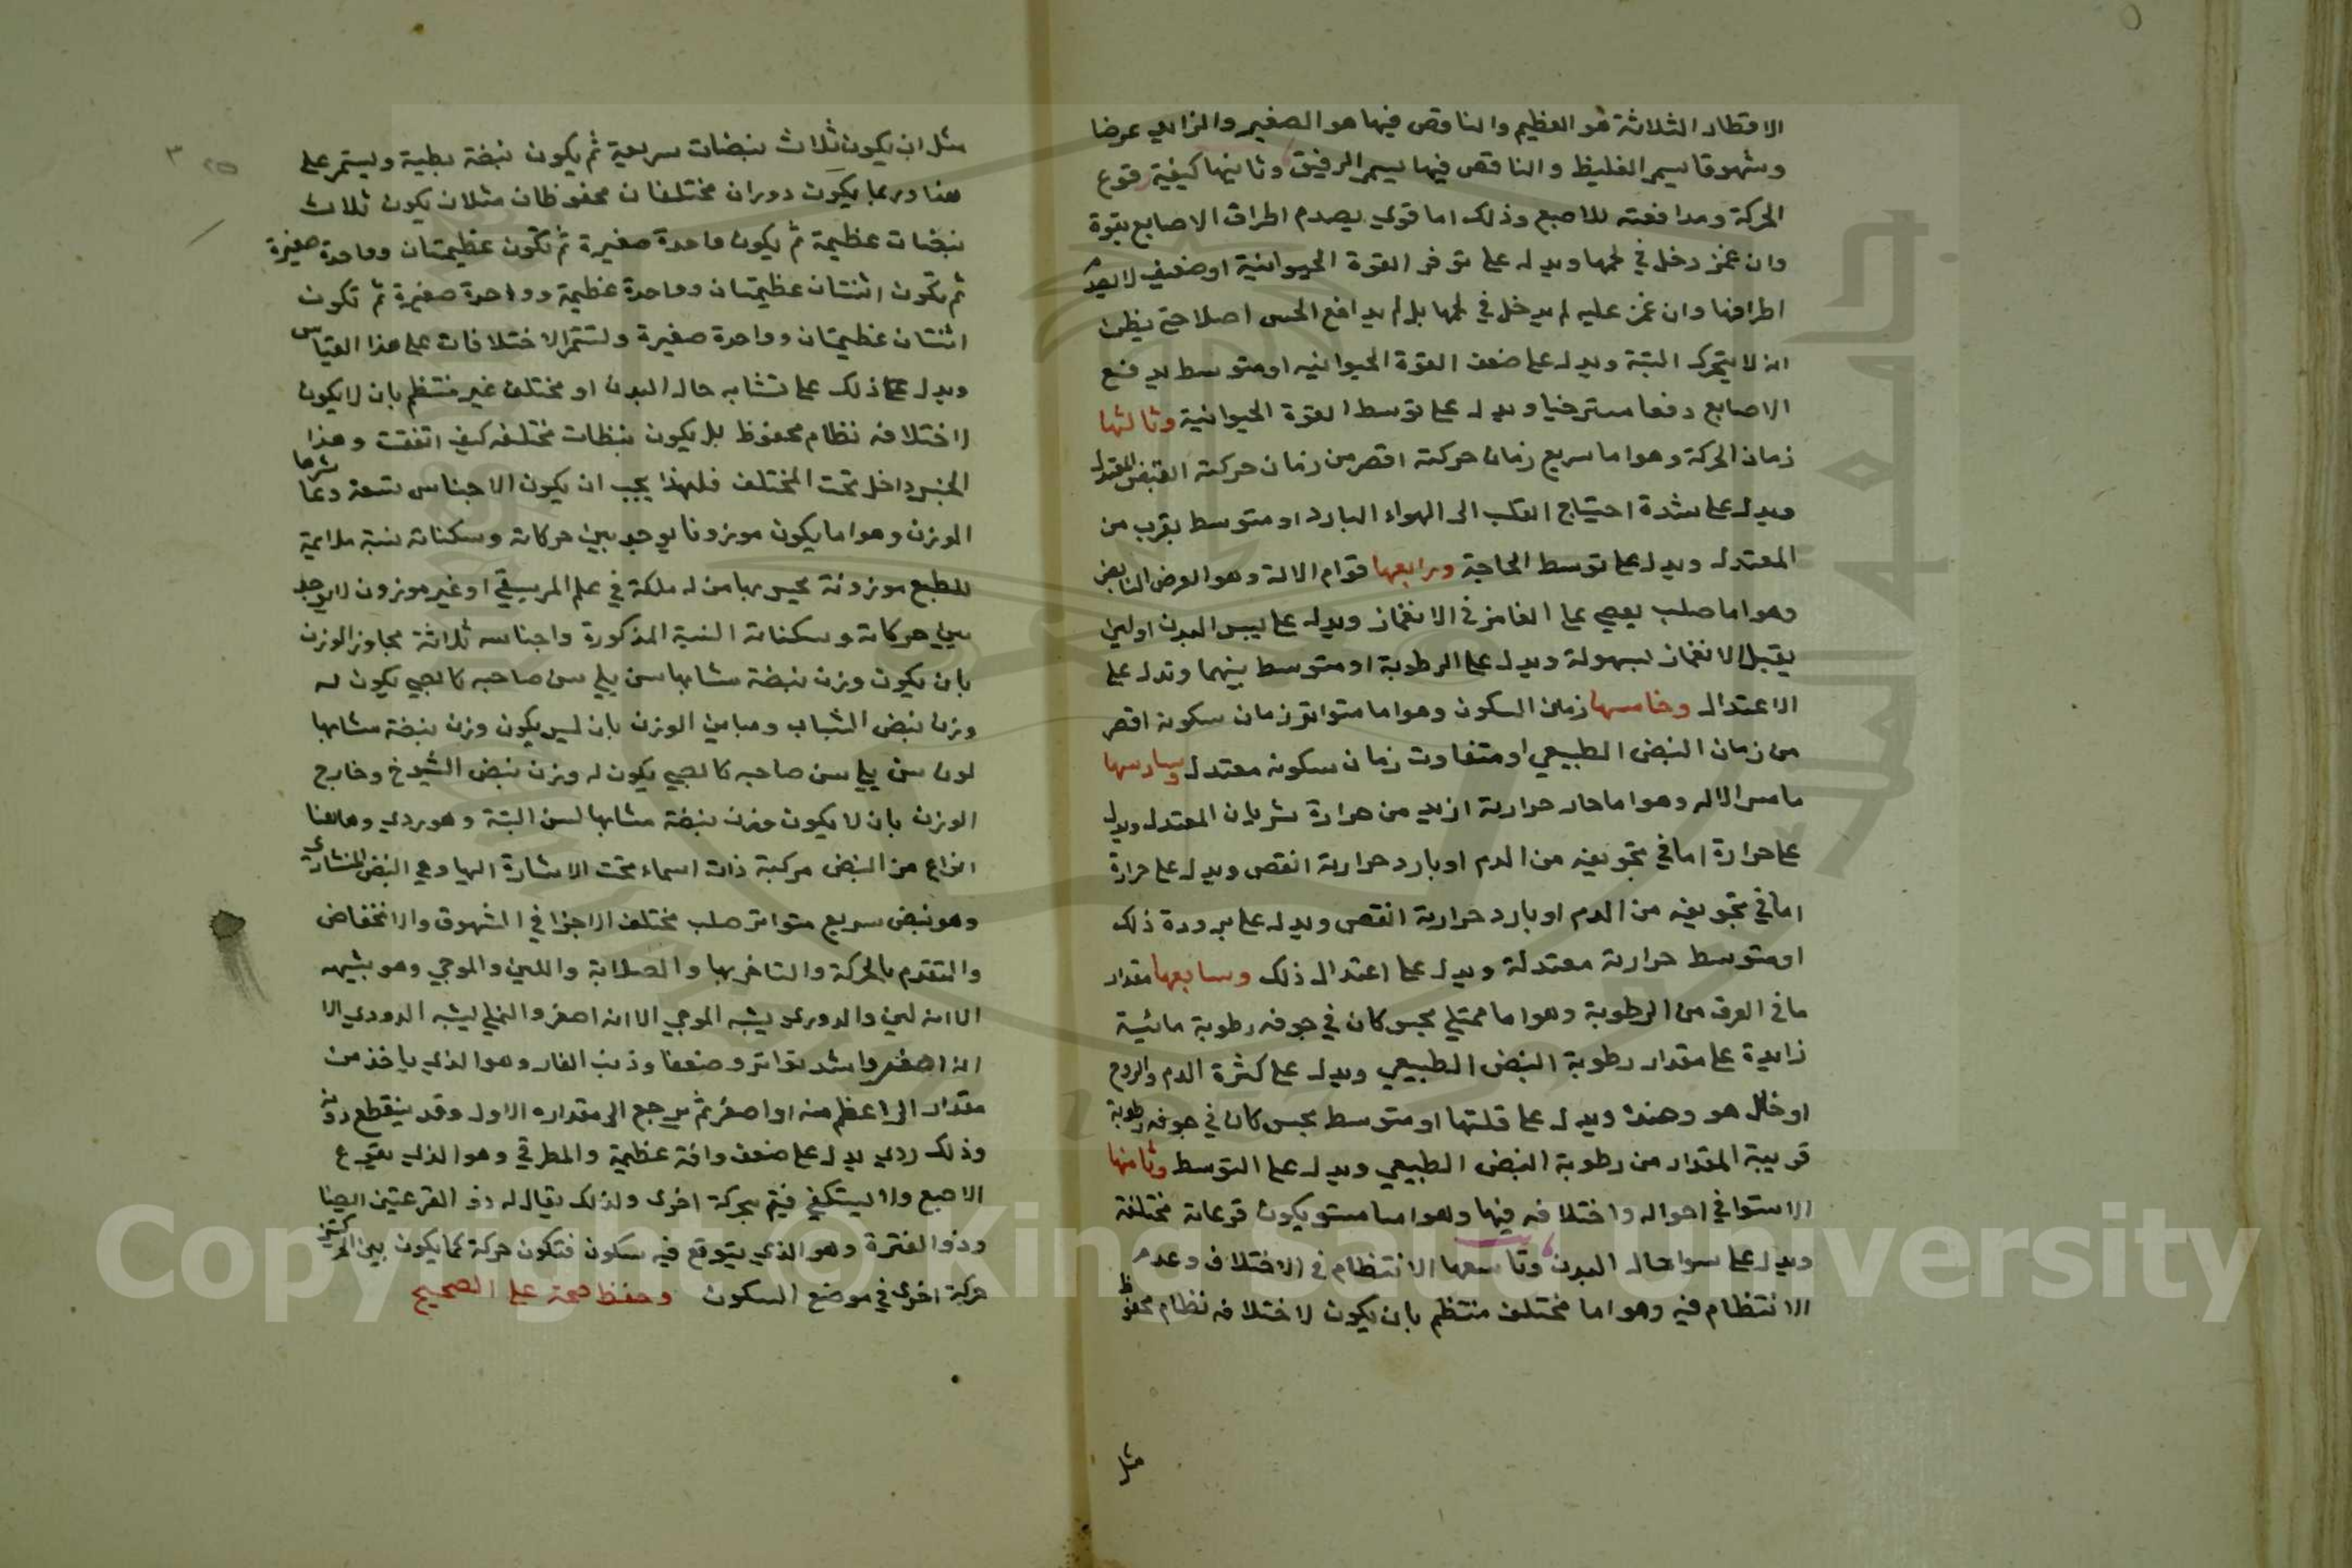 الاقطار الثلاثة هو العظيم والناقص فيها هو الصغير والزايد عرضا
وشهوقا يسمى الغليظ والناقص فيها يسمى الرفيق وثانيها كيفية قوع
الحركة ومدافعته للاصبع وذلك اما قوي يصدم اطراف الاصابع بقوة
وان غمز دخل في لحمها ويدل على توفر القوة الحيوانية او ضعيف لا يصدم
اطرافها وان غمز عليه لم يدخل في لحمها بل لم يدافع الحس اصلا حتى يظن
انه لا يتحرك البتة ويدل على ضعف القوة الحيوانيه او متوسط يدفع
الاصابع دفعا مسترخيا ويدل على توسط القوة الحيوانية وثالثها
زمان الحركة وهو اما سريع زمان حركته اقصر من زمان حركة النبض المعتدل
ويدل على شدة احتياج القلب الى الهواء البارد او متوسط بقرب من
المعتدل ويدل على توسط الحاجة ورابعها قوام الالة وهو العرض النابض
وهو اما صلب يعصي على الغامز في الانغماز ويدل على يبس البدن او لين
يقبل الانغماز بسهولة ويدل على الرطوبة او متوسط بينهما وتدل على
الاعتدال وخامسها زمان السكون وهو اما متواتر زمان سكونه اقصر
من زمان النبض الطبيعي او متفاوت زمان سكونه معتدل وسادسها
ملمس الاله وهو اما حار حرارته ازيد من حرارة شريان المعتدل ويدل
على حرارة اما في تجويفه من الدم او بارد حرارته انقص ويدل على حرارة
اما في تجويفه من الدم او بارد حرارته انقص ويدل على برودة ذلك
او متوسط حرارته معتدلة ويدل على اعتدال ذلك وسابعها مقدار
ما في العرق من الرطوبة وهو اما ممتلي يحس كان في جوفه رطوبة مائية
زايدة على مقدار رطوبة النبض الطبيعي ويدل على كثرة الدم والروح
او خال هو وضده ويدل على قلتها او متوسط يحس كان في جوفه رطوبة
قريبة المقدار من رطوبة النبض الطبيعي ويدل على التوسط وثامنها
الاستوا في احواله واختلافه فيها وهو اما مستو يكون قرعاته مختلفة
ويدل على سوا حال البدن وتاسعها الانتظام في الاختلاف وعدم
الانتظام فيه وهو اما مختلف منتظم بان يكون لاختلافه نظام محفوظ
مثل
٣
مثل ان يكون ثلاث نبضات سريعية ثم يكون نبضة بطية ويستمر على
هذا وربما يكون دوران مختلفان محفوظان مثلان يكون ثلاث
نبضات عظيمة ثم يكون واحدة صغيرة ثم تكون عظيمتان وواحدة صغيرة
ثم تكون اثنتان عظيمتان وواحدة عظيمة وواحدة صغيرة ثم تكون
اثنتان عظيمتان وواحدة صغيرة ولتستمر الاختلافات على هذا القياس
ويدل على ذلك على تشابه حال البدن او مختلف غير منتظم بان لا يكون
لاختلافه نظام محفوظ بل يكون نبظات مختلفه كيف اتفقت وهذا
الجنس داخل تحت المختلف فلهذا يجب ان يكون الاجناس تسعة وعاشرها
الوزن وهو اما يكون موزونا يوجد بين حركاته وسكناته نسبة ملايمة
للطبع موزونة يحس بها من له ملكة في علم الموسيقي او غير موزون لا يوجد
بين حركاته وسكناته النسبة المذكورة واجناسه ثلاثة مجاوز الوزن
بان يكون وزن نبضة مشابها سن يلي سن صاحبه كالصبي يكون له
وزن نبض الشباب ومباين الوزن بان ليس يكون وزن نبضة مشابها
لون سن يلي سن صاحبه كالصبي يكون له وزن نبض الشيوخ وخارج
الوزن بان لا يكون وزن نبضة مشابها لسن البتة وهو ردي وهاهنا
انواع من النبض مركبة ذات اسماء تحت الاشارة اليها وهي النبض المنشاري
وهو نبض سريع متواتر صلب مختلف الاجزا في الشهوق والانخفاض
والتقدم بالحركة والتاخر بها والصلابة واللين والموجي وهو يشبهه
الا انه لين والدودي يشبه الموجي الا انه اصغر والنملي يشبه الدودي الا
انه اصغر واشد تواتر وضعفا وذنب الفار وهو الذي ياخذ من
مقدار الى اعظم منه او اصغر ثم يرجع الى مقداره الاول وقد ينقطع دونه
وذلك ردي يدل على ضعف وافة عظيمة والمطرقي وهو الذي يقرع
الاصبع ولا يستكفي فيتم بحركة اخرى ولذلك يقال له ذو القرعتين ايضا
وذو الفترة وهو الذي يتوقع فيه سكون فتكون حركة كما يكون بين الحركتين
حركة اخرى في موضع السكون وحفظ صحة على الصحيح
Copyright © King Saud University